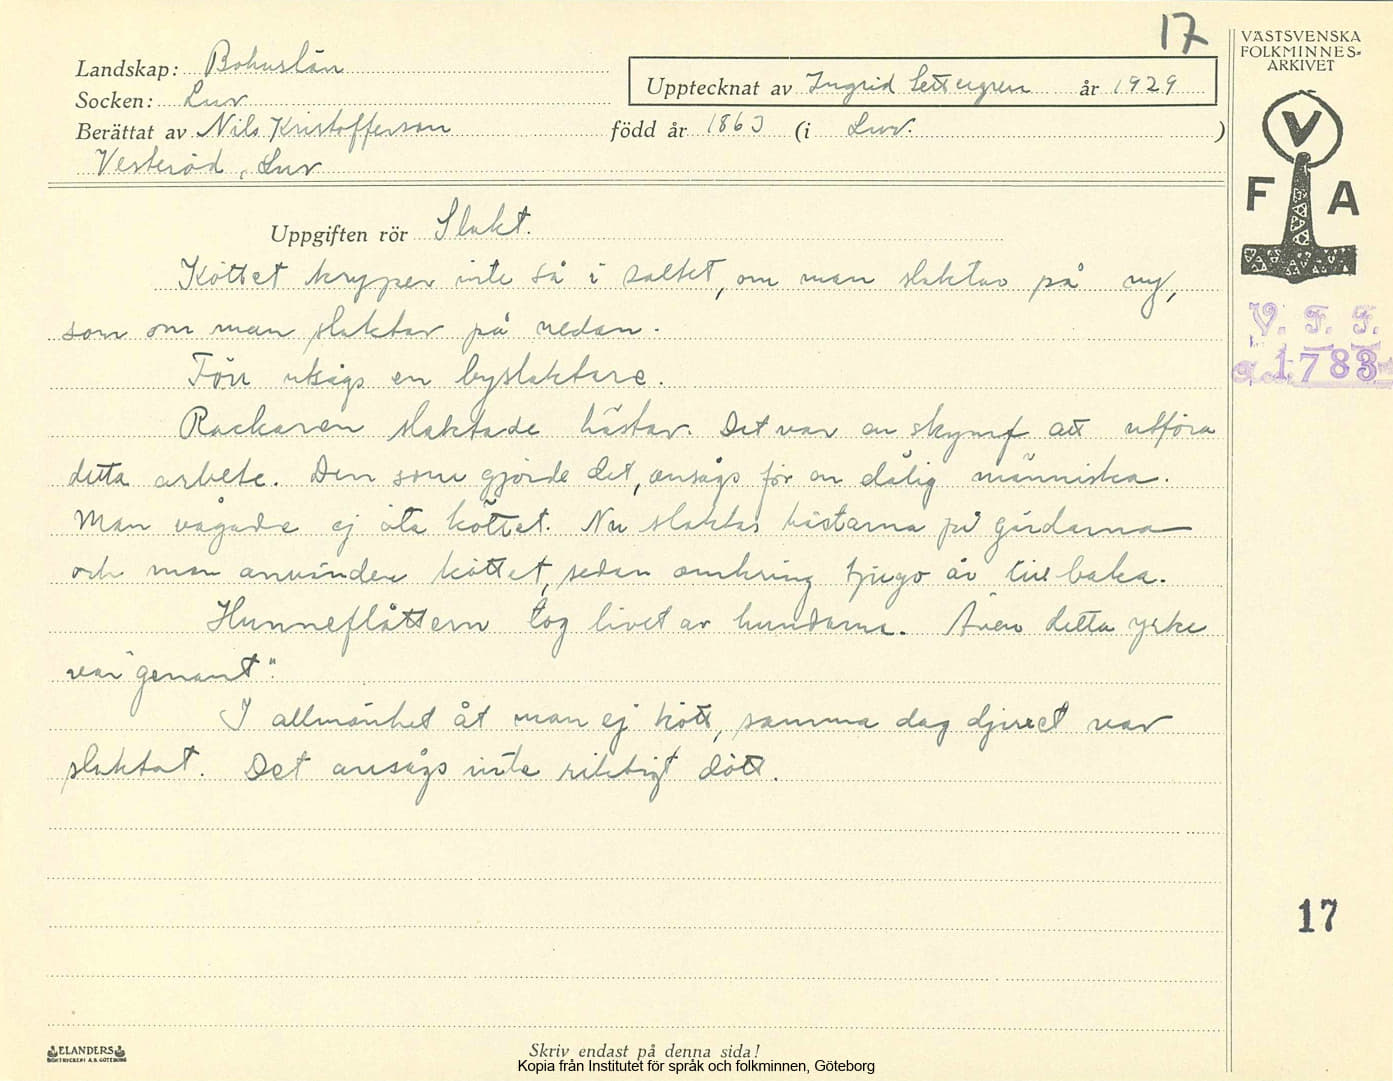 17
VÄSTSVENSKA
FOLKMINNES-
ARKIVET
Landskap: Bohuslän
Upptecknat av Ingrid Settergren år 1929
Socken: Lur
Berättat av Nils Kristofferson född år 1863 (i Lur. )
Vesteröd, Lur
V
F A
Uppgiften rör Slakt.
Köttet kryper inte så i saltet, om man slaktar på ny,
som om man slaktar på nedan.
V. F. F.
1783
Förr utsågs en byslaktare.
Rackaren slaktade hästar. Det var en skymf att utföra
detta arbete. Den som gjorde det, ansågs för en dålig människa.
Man vågade ej äta köttet. Nu slaktas hästarna på gårdarna
och man använder köttet, sedan omkring tjugo år tillbaka.
Hunneflåttern tog livet av hundarna. Även detta yrke
var "genant".
I allmänhet åt man ej kött, samma dag djuret var
slaktat. Det ansågs inte riktigt dött.
17
ELANDERS
BOKTRYCKERI A.B. GÖTEBORG
Skriv endast på denna sida!
Kopia från Institutet för språk och folkminnen, Göteborg